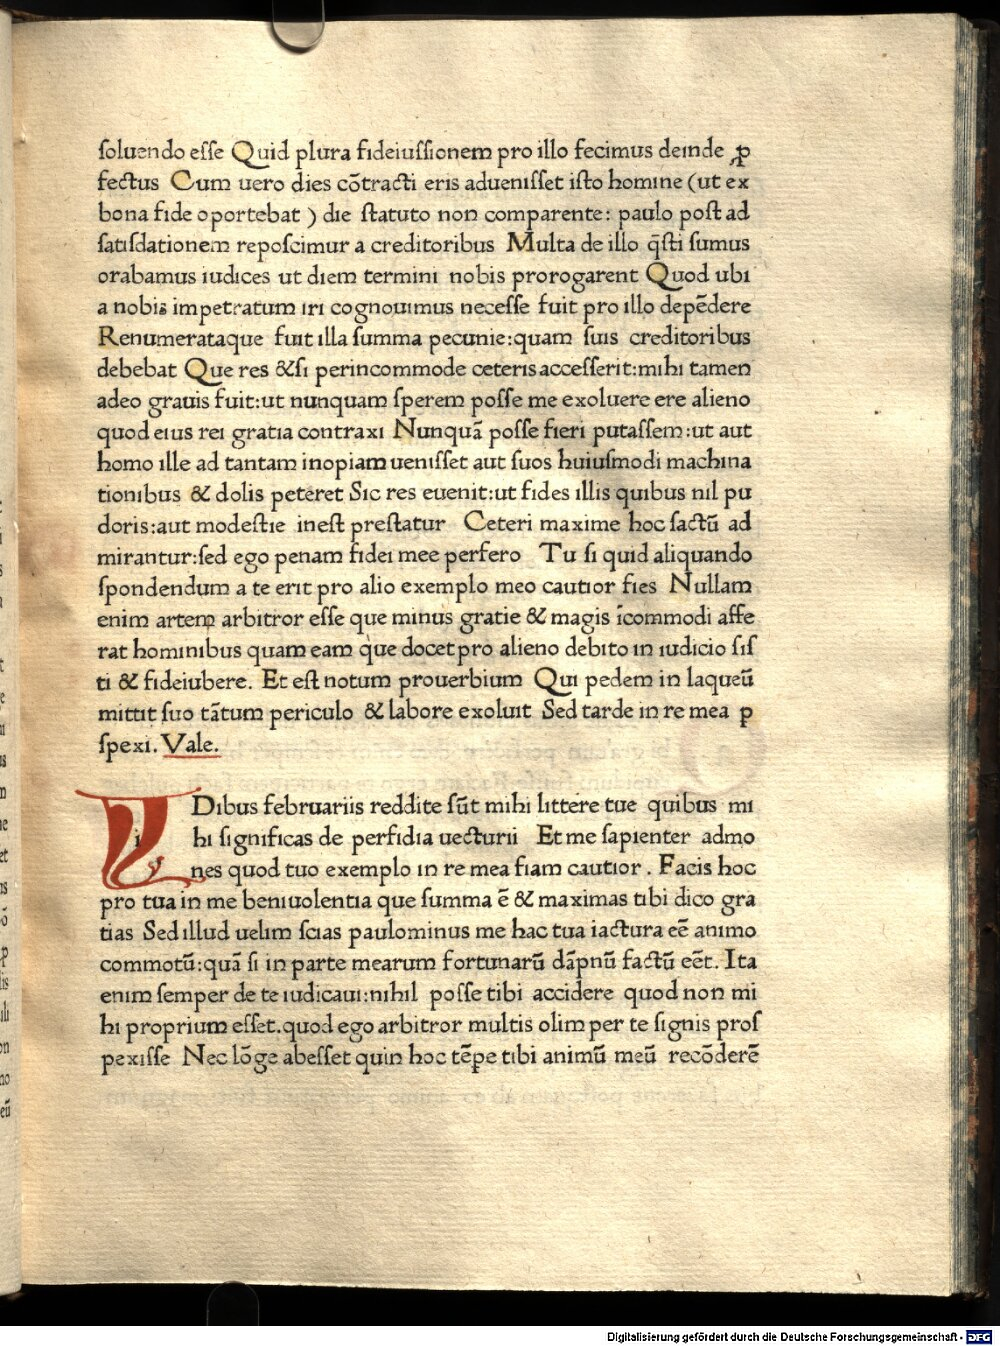 ſoluendo eſſe Quid plura fideiuſſionem pro illo fecimus deinde ꝓ
fectus Cum uero dies cōtracti eris adueniſſet iſto homine (ut ex
bona fide oportebat ) die ſtatuto non comparente: paulo poſt ad
ſatiſdationem repoſcimur a creditoribus Multa de illo q̄ſti ſumus
orabamus iudices ut diem termini nobis prorogarent Quod ubi
a nobis impetratum iri cognouimus neceſſe fuit pro illo depēdere
Renumerataque fuit illa ſumma pecunie:quam ſuis creditoribus
debebat Que res &ſi perincommode ceteris acceſſerit:mihi tamen
adeo grauis fuit:ut nunquam ſperem poſſe me exoluere ere alieno
quod eius rei gratia contraxi Nunquā poſſe fieri putaſſem:ut aut
homo ille ad tantam inopiam ueniſſet aut ſuos huiuſmodi machina
tionibus & dolis peteret Sic res euenit:ut fides illis quibus nil pu
doris:aut modeſtie ineſt preſtatur Ceteri maxime hoc factū ad
mirantur:ſed ego penam fidei mee perfero Tu ſi quid aliquando
ſpondendum a te erit pro alio exemplo meo cautior fies Nullam
enim artem arbitror eſſe que minus gratie & magis īcommodi affe
rat hominibus quam eam que docet pro alieno debito in iudicio ſiſ
ti & fideiubere. Et eſt notum prouerbium Qui pedem in laqueū
mittit ſuo tātum periculo & labore exoluit Sed tarde in re mea p
ſpexi. Vale.
Dibus februariis reddite ſūt mihi littere tue quibus mi
hi ſignificas de perfidia uecturii Et me ſapienter admo
nes quod tuo exemplo in re mea fiam cautior . Facis hoc
pro tua in me beniuolentia que ſumma ē & maximas tibi dico gra
tias Sed illud uelim ſcias paulominus me hac tua iactura eē animo
commotū:quā ſi in parte mearum fortunarū dāpnū factū eēt. Ita
enim ſemper de te iudicaui:nihil poſſe tibi accidere quod non mi
hi proprium eſſet.quod ego arbitror multis olim per te ſignis proſ
pexiſſe Nec lōge abeſſet quin hoc tēꝑe tibi animū meū recōderē
Digitalisierung gefördert durch die Deutsche Forschungsgemeinschaft - DFG